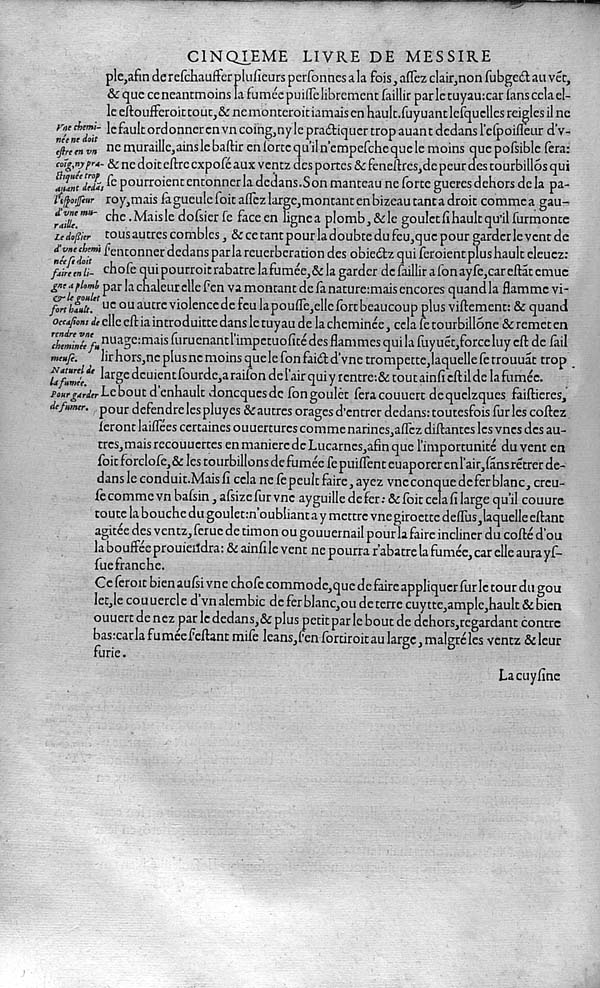 CINQIEME LIVRE DE MESSIRE
ple, afin de reſchauffer pluſieurs perſonnes a la fois, aſſez clair, non ſubgect au vẽt,
& que ce neantmoins la fumée puiſſe librement ſaillir par le tuyau: car ſans cela el-
le eſtoufferoit tout, & ne monteroit iamais en hault. ſuyuant leſquelles reigles il ne
le fault ordonner en vn coing, ny le practiquer trop auant dedans l'eſpoiſſeur d'v-
ne muraille, ains le baſtir en ſorte qu'il n'empeſche que le moins que poſsible ſera:
& ne doit eſtre expoſé aux ventz des portes & feneſtres, de peur des tourbillõs qui
ſe pourroient entonner la dedans. Son manteau ne ſorte gueres dehors de la pa-
roy, mais ſa gueule ſoit aſſez large, montant en bizeau tant a droit comme a gau-
che. Mais le doſsier ſe face en ligne a plomb, & le goulet ſi hault qu'il ſurmonte
tous autres combles, & ce tant pour la doubte du feu, que pour garder le vent de
ſ'entonner dedans par la reuerberation des obiectz qui ſeroient plus hault eleuez:
choſe qui pourroit rabatre la fumée, & la garder de ſaillir a ſon ayſe, car eſtãt emue
par la chaleur elle ſ'en va montant de ſa nature: mais encores quand la flamme vi-
ue ou autre violence de feu la pouſſe, elle ſort beaucoup plus viſtement: & quand
elle eſt ia introduitte dans le tuyau de la cheminée, cela ſe tourbillõne & remet en
nuage: mais ſuruenant l'impetuoſité des flammes qui la ſuyuẽt, force luy eſt de ſail
lir hors, ne plus ne moins que le ſon faict d'vne trompette, laquelle ſe trouuãt trop
large deuient ſourde, a raiſon de l'air qui y rentre: & tout ainſi eſt il de la fumée.
Le bout d'enhault doncques de ſon goulet ſera couuert de quelzques faiſtieres,
pour defendre les pluyes & autres orages d'entrer dedans: toutesfois ſur les coſtez
ſeront laiſſées certaines ouuertures comme narines, aſſez diſtantes les vnes des au-
tres, mais recouuertes en maniere de Lucarnes, afin que l'importunité du vent en
ſoit forcloſe, & les tourbillons de fumée ſe puiſſent euaporer en l'air, ſans rẽtrer de-
dans le conduit. Mais ſi cela ne ſe peult faire, ayez vne conque de fer blanc, creu-
ſe comme vn baſsin, aſsize ſur vne ayguille de fer: & ſoit cela ſi large qu'il couure
toute la bouche du goulet: n'oubliant a y mettre vne giroette deſſus, laquelle eſtant
agitée des ventz, ſerue de timon ou gouuernail pour la faire incliner du coſté d'ou
la bouffée prouiendra: & ainſi le vent ne pourra r'abatre la fumée, car elle aura yſ-
ſue franche.
Ce ſeroit bien auſsi vne choſe commode, que de faire appliquer ſur le tour du gou
let, le couuercle d'vn alembic de fer blanc, ou de terre cuytte, ample, hault & bien
ouuert de nez par le dedans, & plus petit par le bout de dehors, regardant contre
bas: car la fumée ſ'eſtant miſe leans, ſ'en ſortiroit au large, malgré les ventz & leur
furie.
La cuyſine
Vne chemi-
née ne doit
eſtre en vn
coĩg, ny pra-
ctiquée trop
auant dedãs
l'eſpoiſſeur
d'vne mu-
raille.
Le doſsier
d'vne chemi
née ſe doit
faire en li-
gne a plomb
& le goulet
fort hault.
Occaſions de
rendre vne
cheminée fu
meuſe.
Naturel de
la fumée.
Pour garder
de fumer.